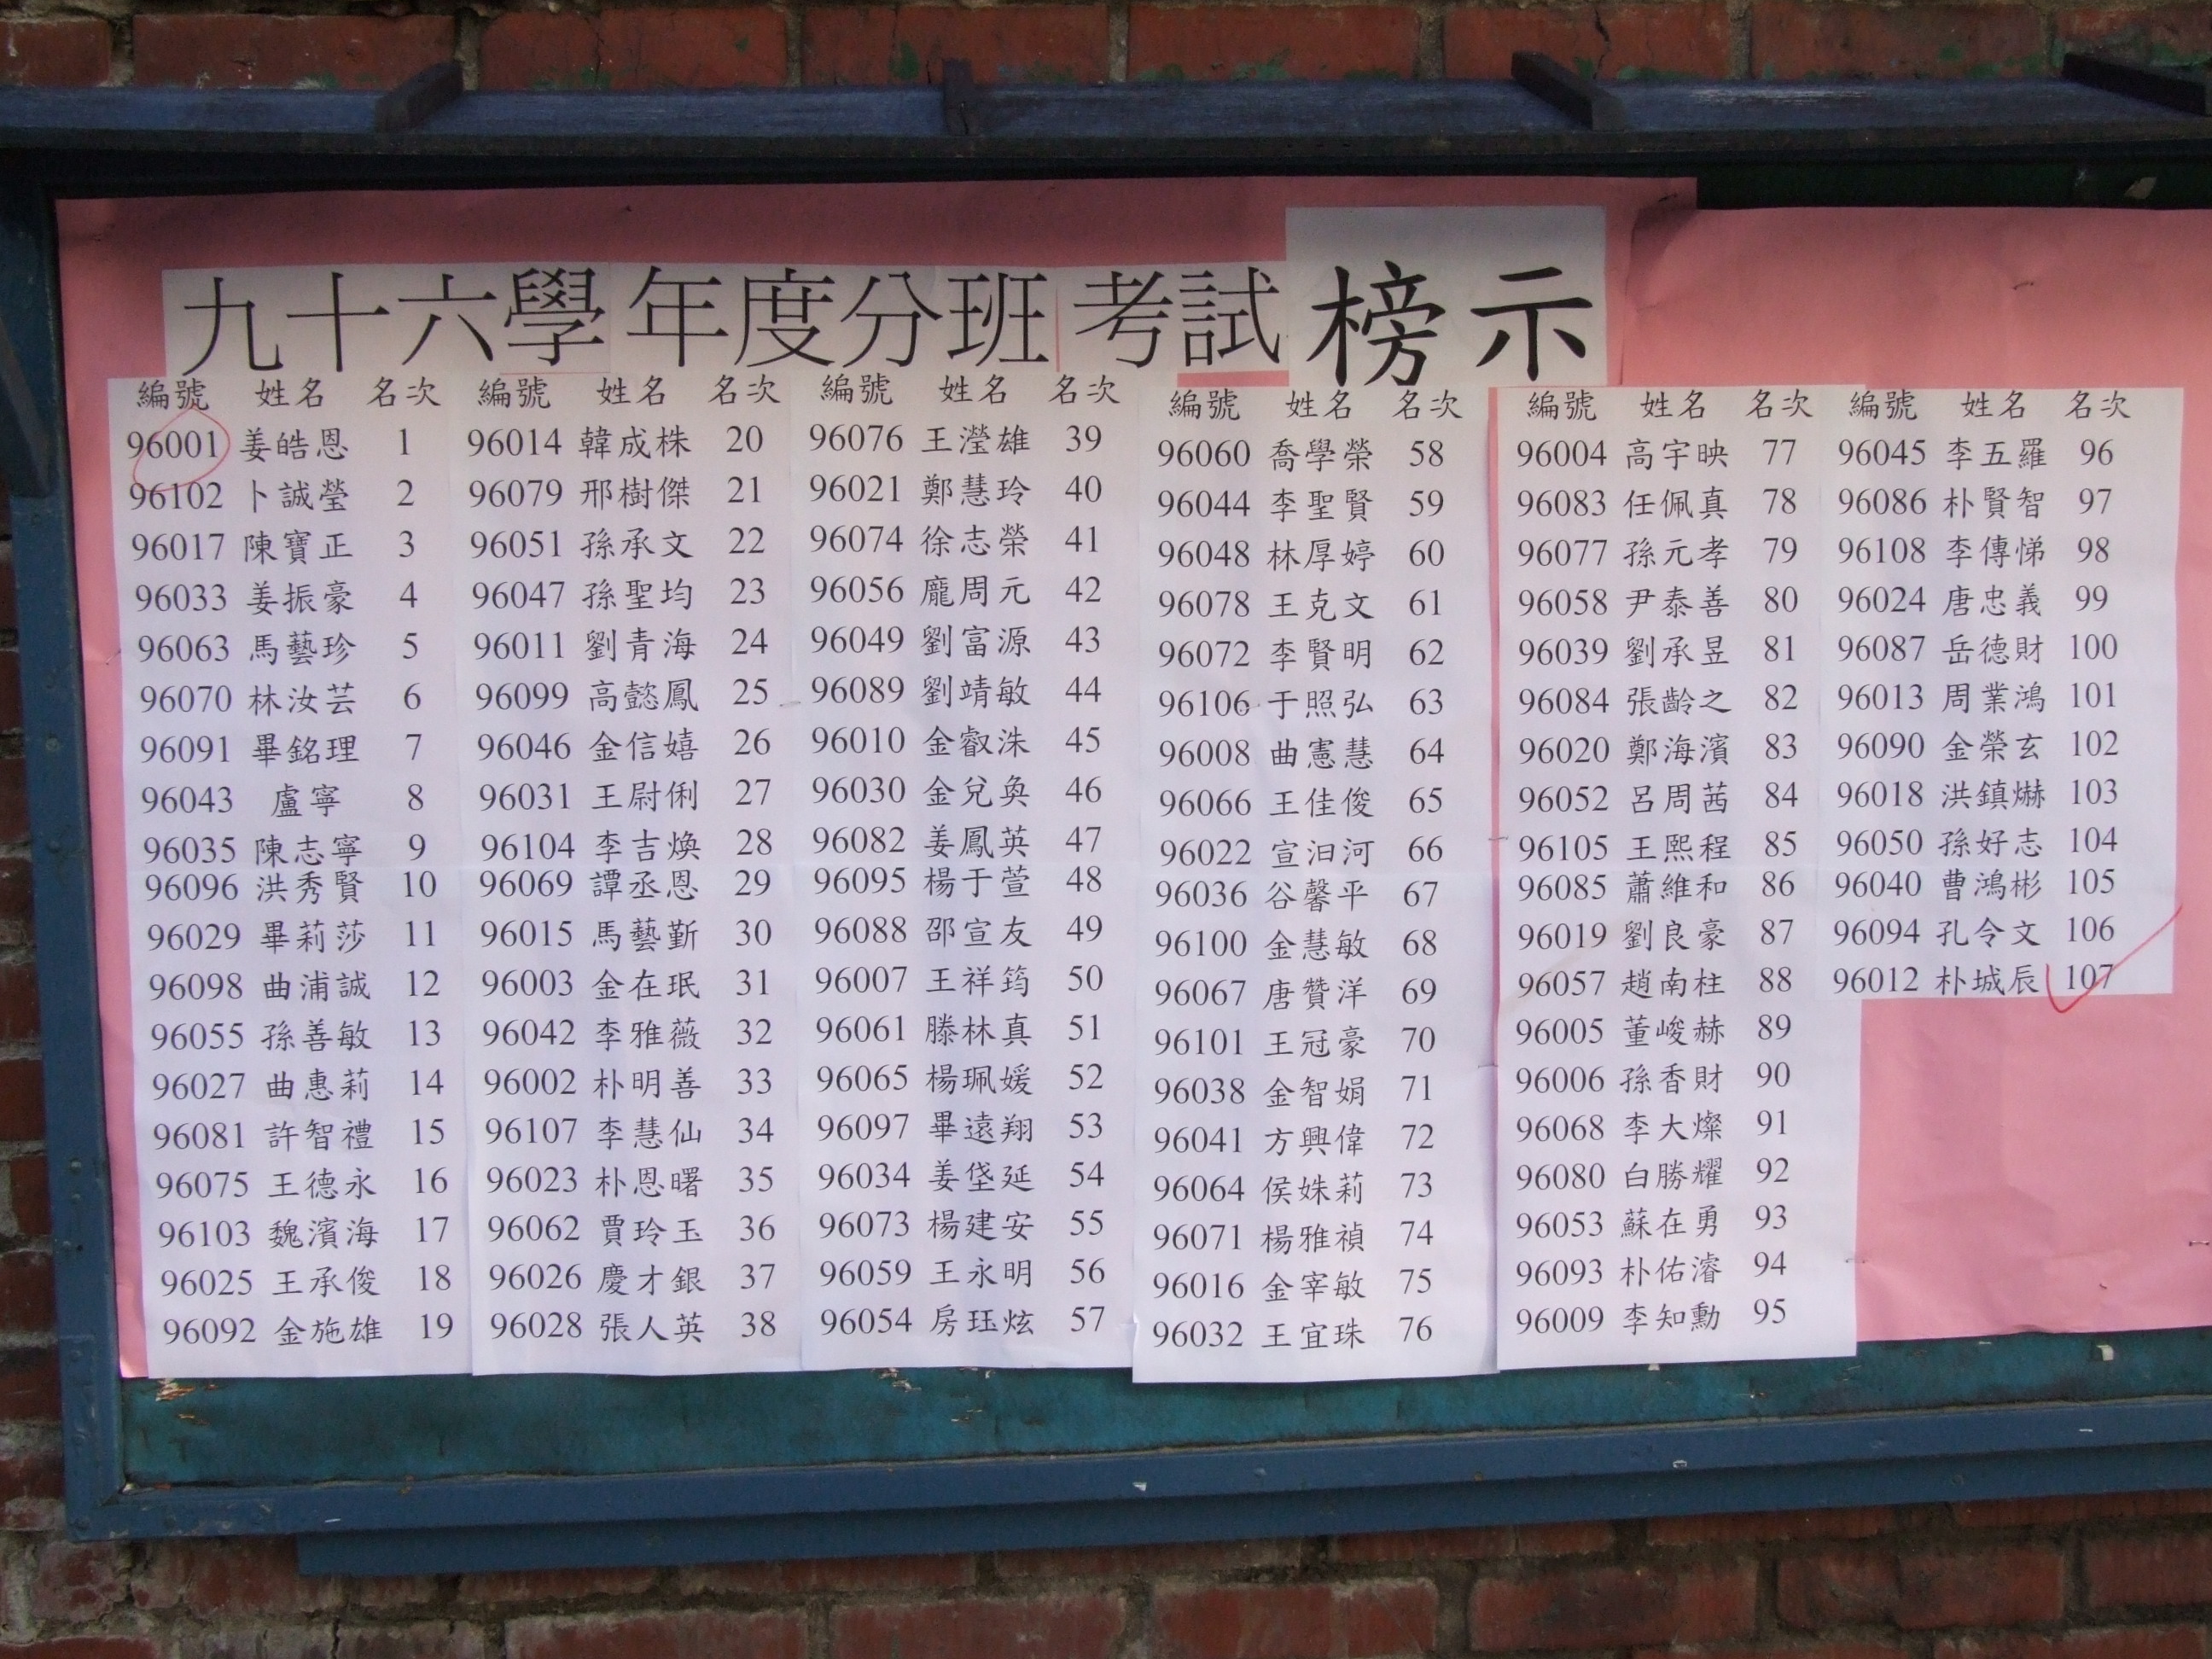 九十六學年度分班考試榜示
編號 姓名 名次
96001 姜皓恩 1
96102 卜誠瑩 2
96017 陳寶正 3
96033 姜振豪 4
96063 馬藝珍 5
96070 林汝芸 6
96091 畢銘理 7
96043 盧寧 8
96035 陳志寧 9
96096 洪秀賢 10
96029 畢莉莎 11
96098 曲浦誠 12
96055 孫善敏 13
96027 曲惠莉 14
96081 許智禮 15
96075 王德永 16
96103 魏濱海 17
96025 王承俊 18
96092 金施雄 19
編號 姓名 名次
96014 韓成株 20
96079 邢樹傑 21
96051 孫承文 22
96047 孫聖均 23
96011 劉青海 24
96099 高懿鳳 25
96046 金信嬉 26
96031 王尉俐 27
96104 李吉煥 28
96069 譚丞恩 29
96015 馬藝斳 30
96003 金在珉 31
96042 李雅薇 32
96002 朴明善 33
96107 李慧仙 34
96023 朴恩曙 35
96062 賈玲玉 36
96026 慶才銀 37
96028 張人英 38
編號 姓名 名次
96076 王瀅雄 39
96021 鄭慧玲 40
96074 徐志榮 41
96056 龐周元 42
96049 劉富源 43
96089 劉靖敏 44
96010 金叡洙 45
96030 金兌奐 46
96082 姜鳳英 47
96095 楊于萱 48
96088 邵宣友 49
96007 王祥筠 50
96061 滕林真 51
96065 楊珮媛 52
96097 畢遠翔 53
96034 姜垡延 54
96073 楊建安 55
96059 王永明 56
96054 房珏炫 57
編號 姓名 名次
96060 喬學榮 58
96044 李聖賢 59
96048 林厚婷 60
96078 王克文 61
96072 李賢明 62
96106 于照弘 63
96008 曲憲慧 64
96066 王佳俊 65
96022 宣汩河 66
96036 谷馨平 67
96100 金慧敏 68
96067 唐贊洋 69
96101 王冠豪 70
96038 金智娟 71
96041 方興偉 72
96064 侯姝莉 73
96071 楊雅禎 74
96016 金宰敏 75
96032 王宜珠 76
編號 姓名 名次
96004 高宇映 77
96083 任佩真 78
96077 孫元孝 79
96058 尹泰善 80
96039 劉承昱 81
96084 張齡之 82
96020 鄭海濱 83
96052 呂周茜 84
96105 王熙程 85
96085 蕭維和 86
96019 劉良豪 87
96057 趙南柱 88
96005 董峻赫 89
96006 孫香財 90
96068 李大燦 91
96080 白勝耀 92
96053 蘇在勇 93
96093 朴佑濬 94
96009 李知勳 95
編號 姓名 名次
96045 李五羅 96
96086 朴賢智 97
96108 李傳悌 98
96024 唐忠義 99
96087 岳德財 100
96013 周業鴻 101
96090 金榮玄 102
96018 洪鎮爀 103
96050 孫好志 104
96040 曹鴻彬 105
96094 孔令文 106
96012 朴城辰 107